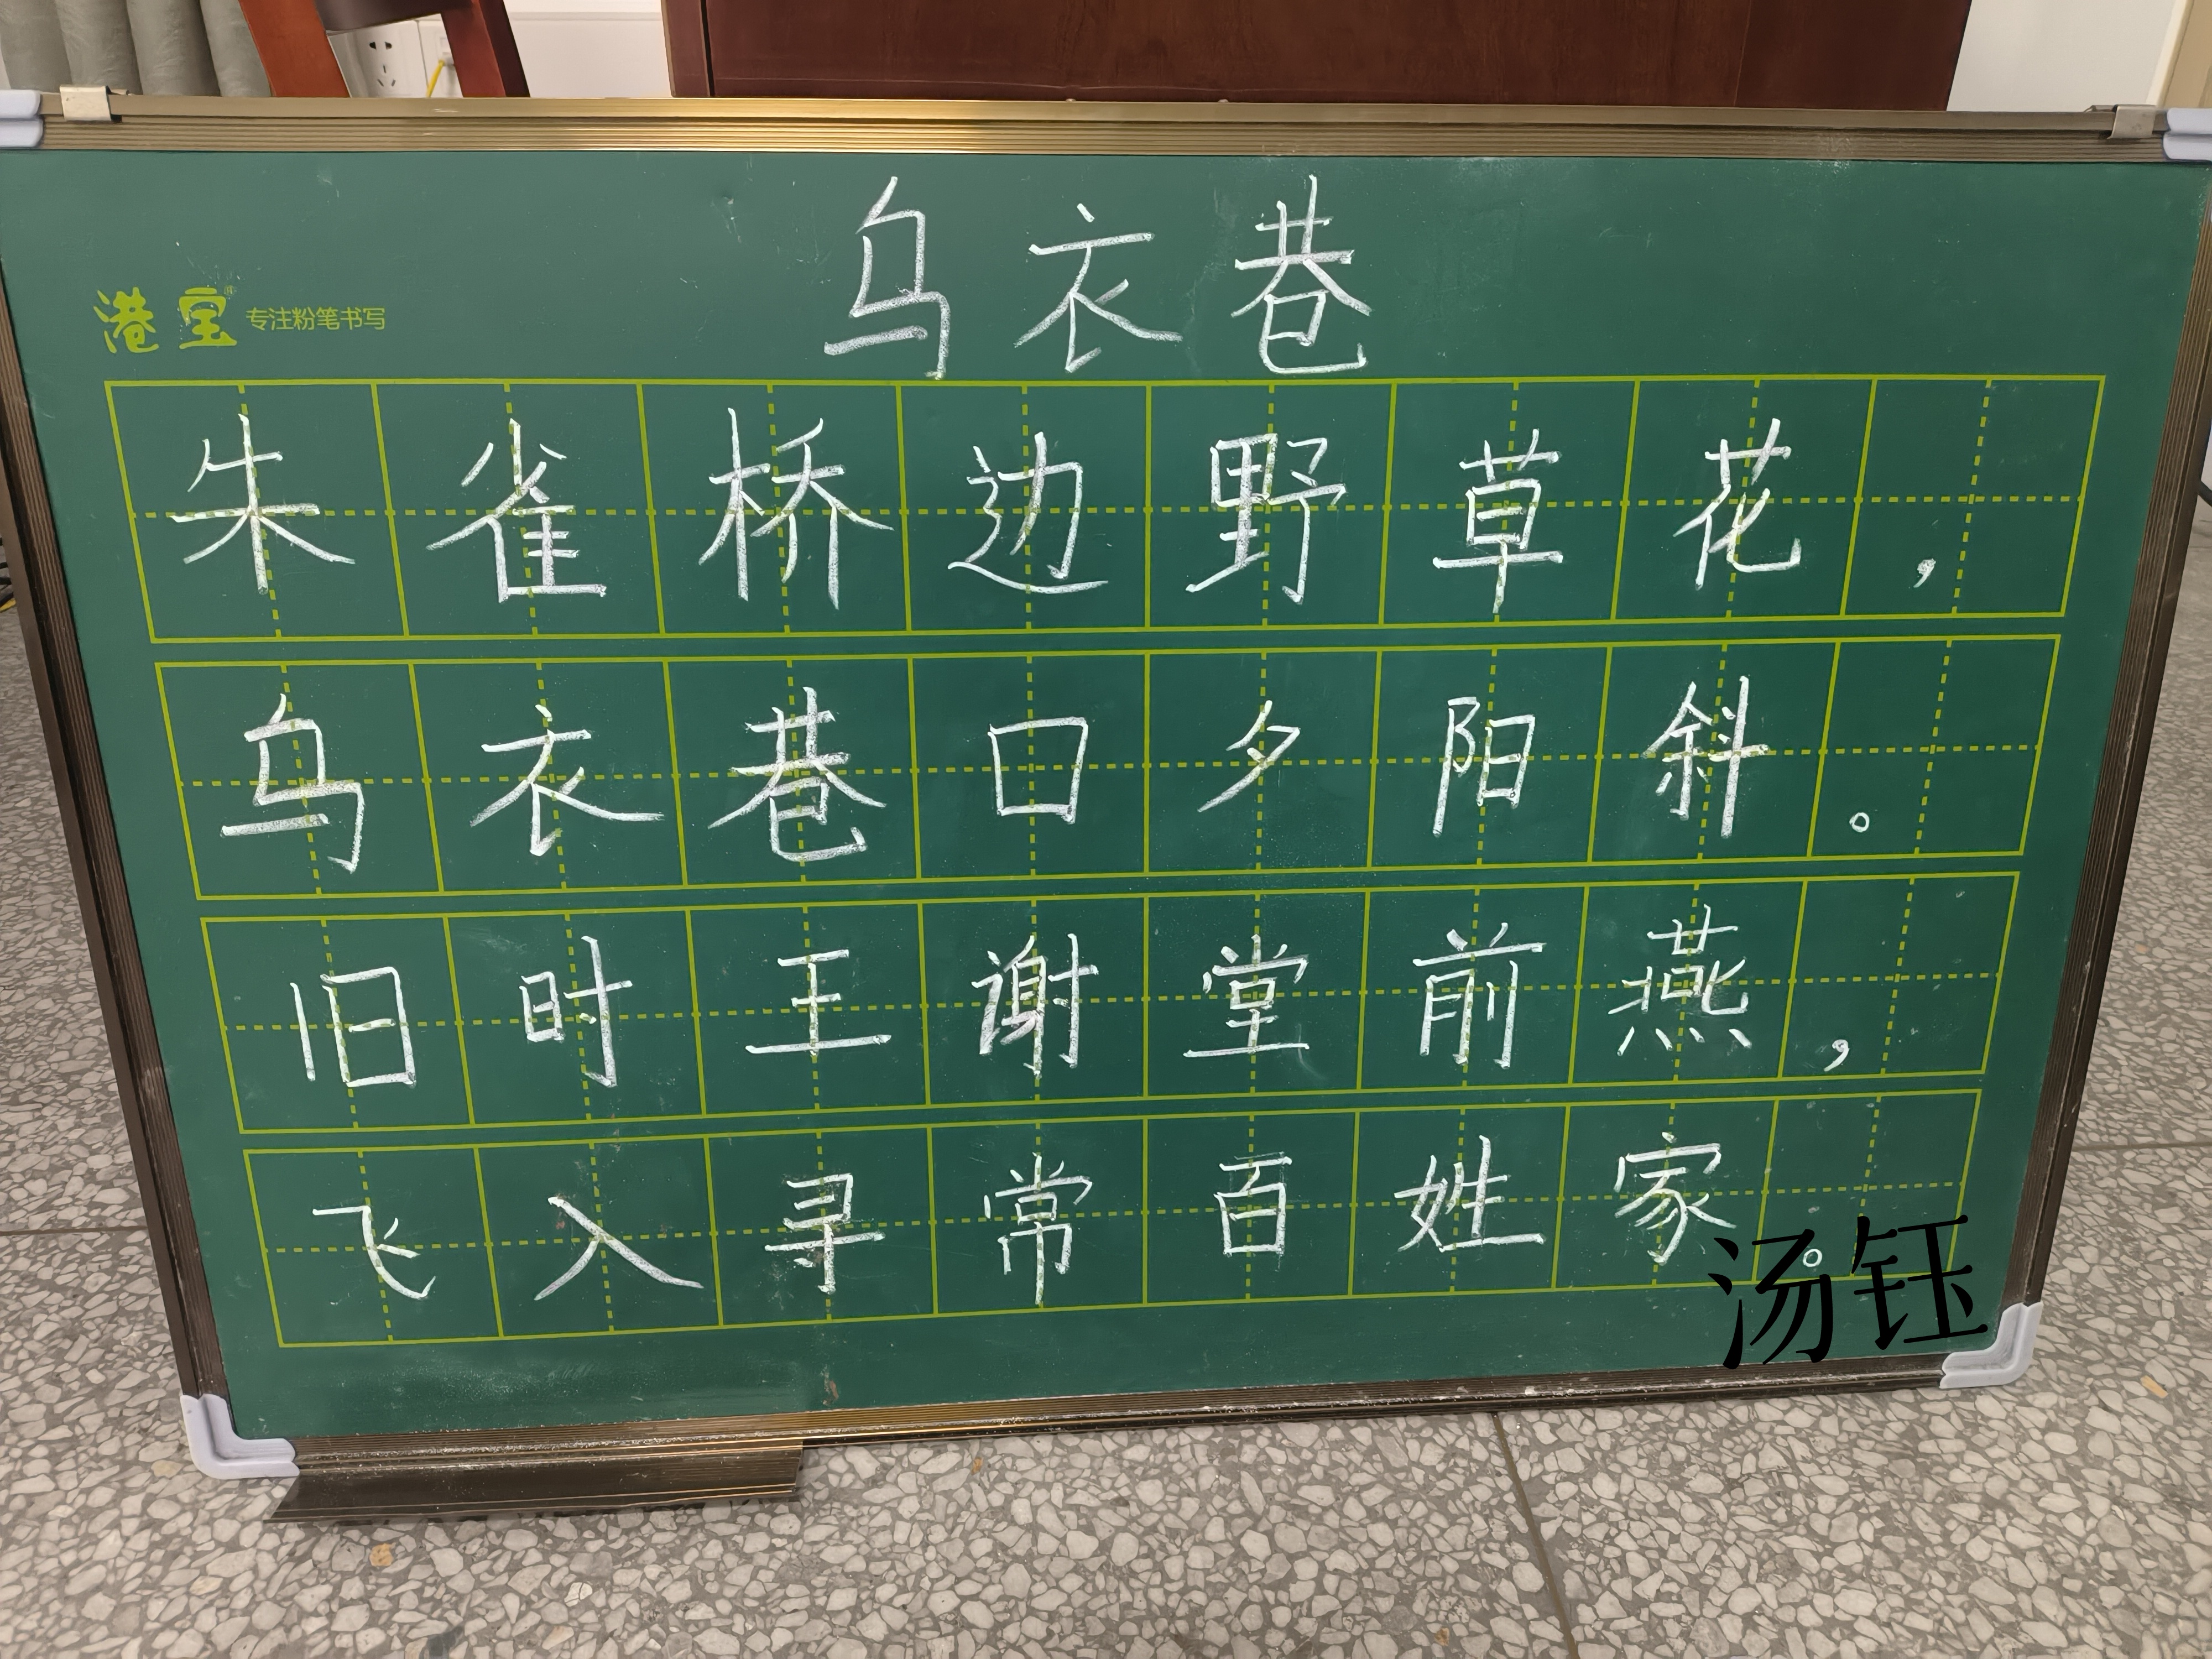 乌衣巷
港宝® 专注粉笔书写
朱雀桥边野草花，
乌衣巷口夕阳斜。
旧时王谢堂前燕，
飞入寻常百姓家。
汤钰